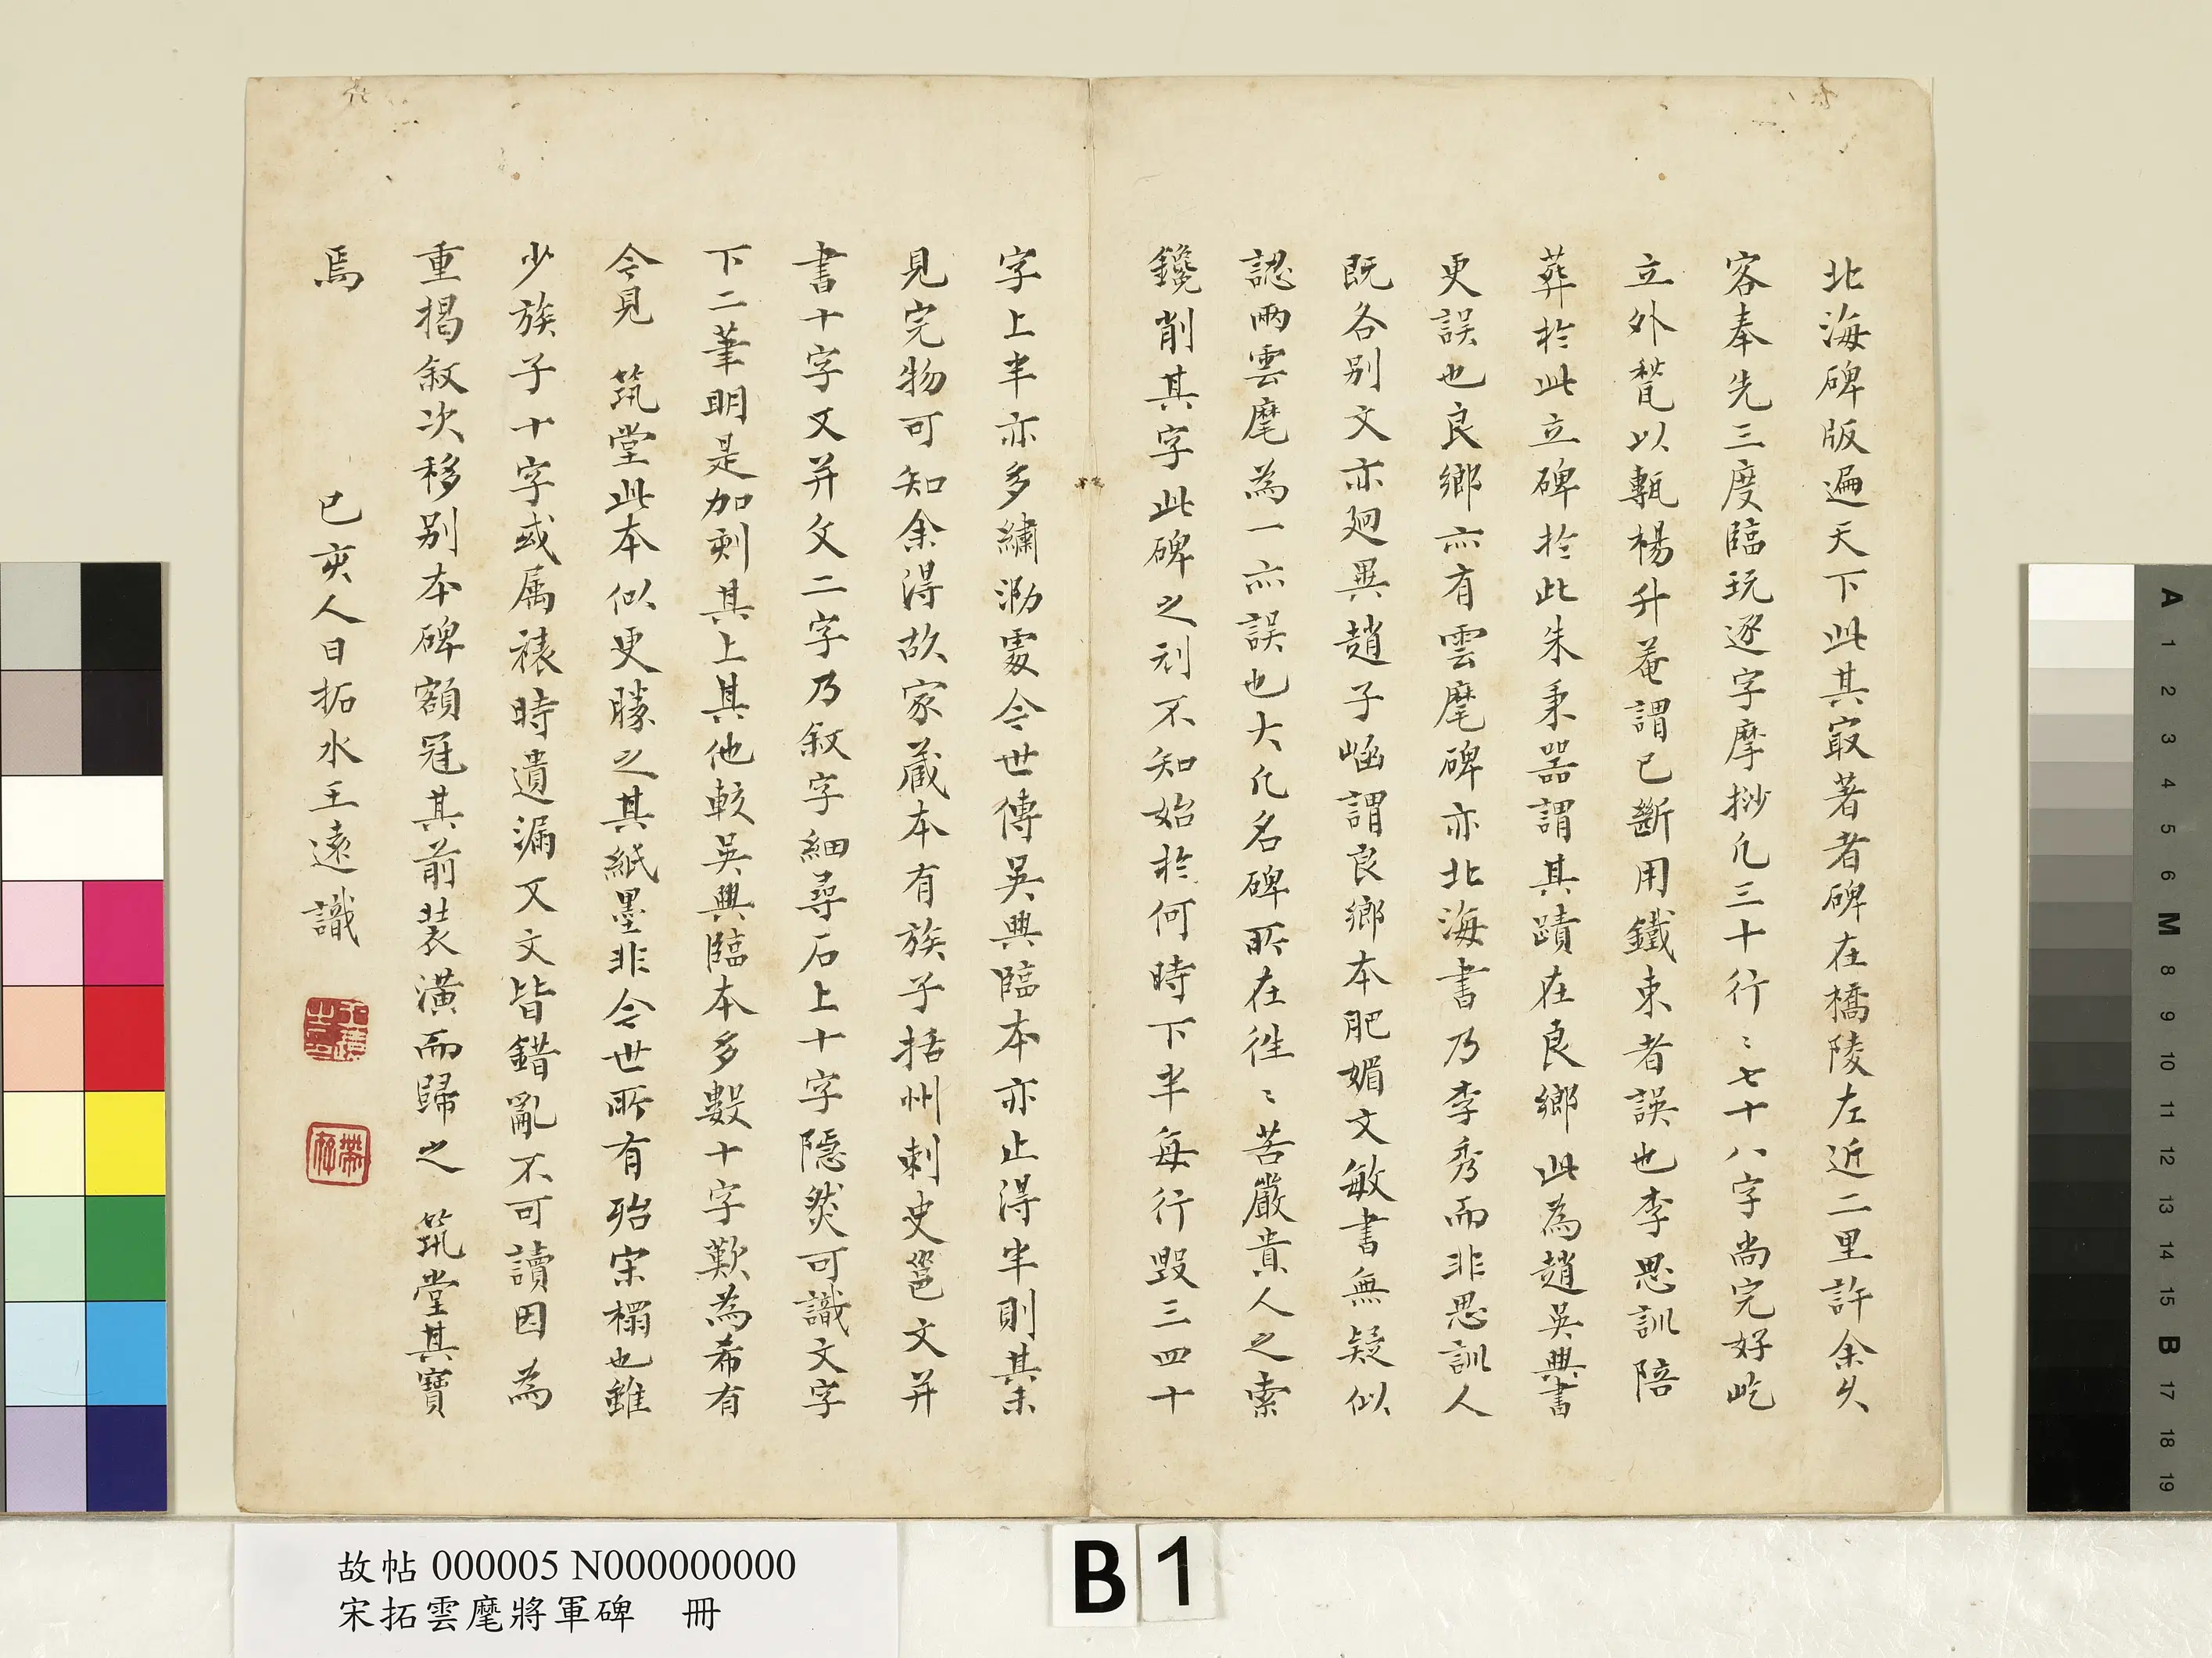 北海碑版遍天下此其㝡著者碑在橋陵左近二里許余久
客奉先三度臨玩逐字摩挱凢三十行〻七十八字尚完好屹
立外甃以甎楊升菴謂已斷用鐵束者誤也李思訓陪
葬於此立碑於此朱秉器謂其蹟在良鄉此為趙吳興書
更誤也良鄉亦有雲麾碑亦北海書乃李秀而非思訓人
既各别文亦廻異趙子崡謂良鄉本肥媚文敏書無疑似
認兩雲麾為一亦誤也大凢名碑所在徃〻苦嚴貴人之索
鑱削其字此碑之刓不知始於何時下半每行毀三四十
字上半亦多繡泐䖏今世傳吳興臨本亦止得半則其未
見完物可知余得故家藏本有族子括州刺史邕文并
書十字又并文二字乃叙字細尋石上十字隱然可識文字
下二筆明是加刻其上其他較吳興臨本多數十字歎為希有
今見 筑堂此本似更勝之其紙墨非今世所有殆宋榻也雖
少族子十字或属裱時遺漏又文皆錯亂不可讀因為
重揭叙次移别本碑額冠其前装潢而歸之 筑堂其寶
焉 已亥人日拓水王遠識
故帖 000005 N000000000
宋拓雲麾將軍碑 冊
B 1
A 1 2 3 4 5 6 M 8 9 10 11 12 13 14 15 B 17 18 19